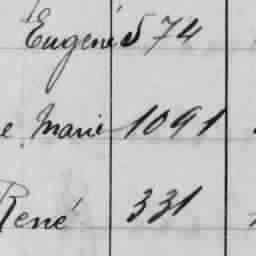 Eugené 574
e Marie 1091
René 331